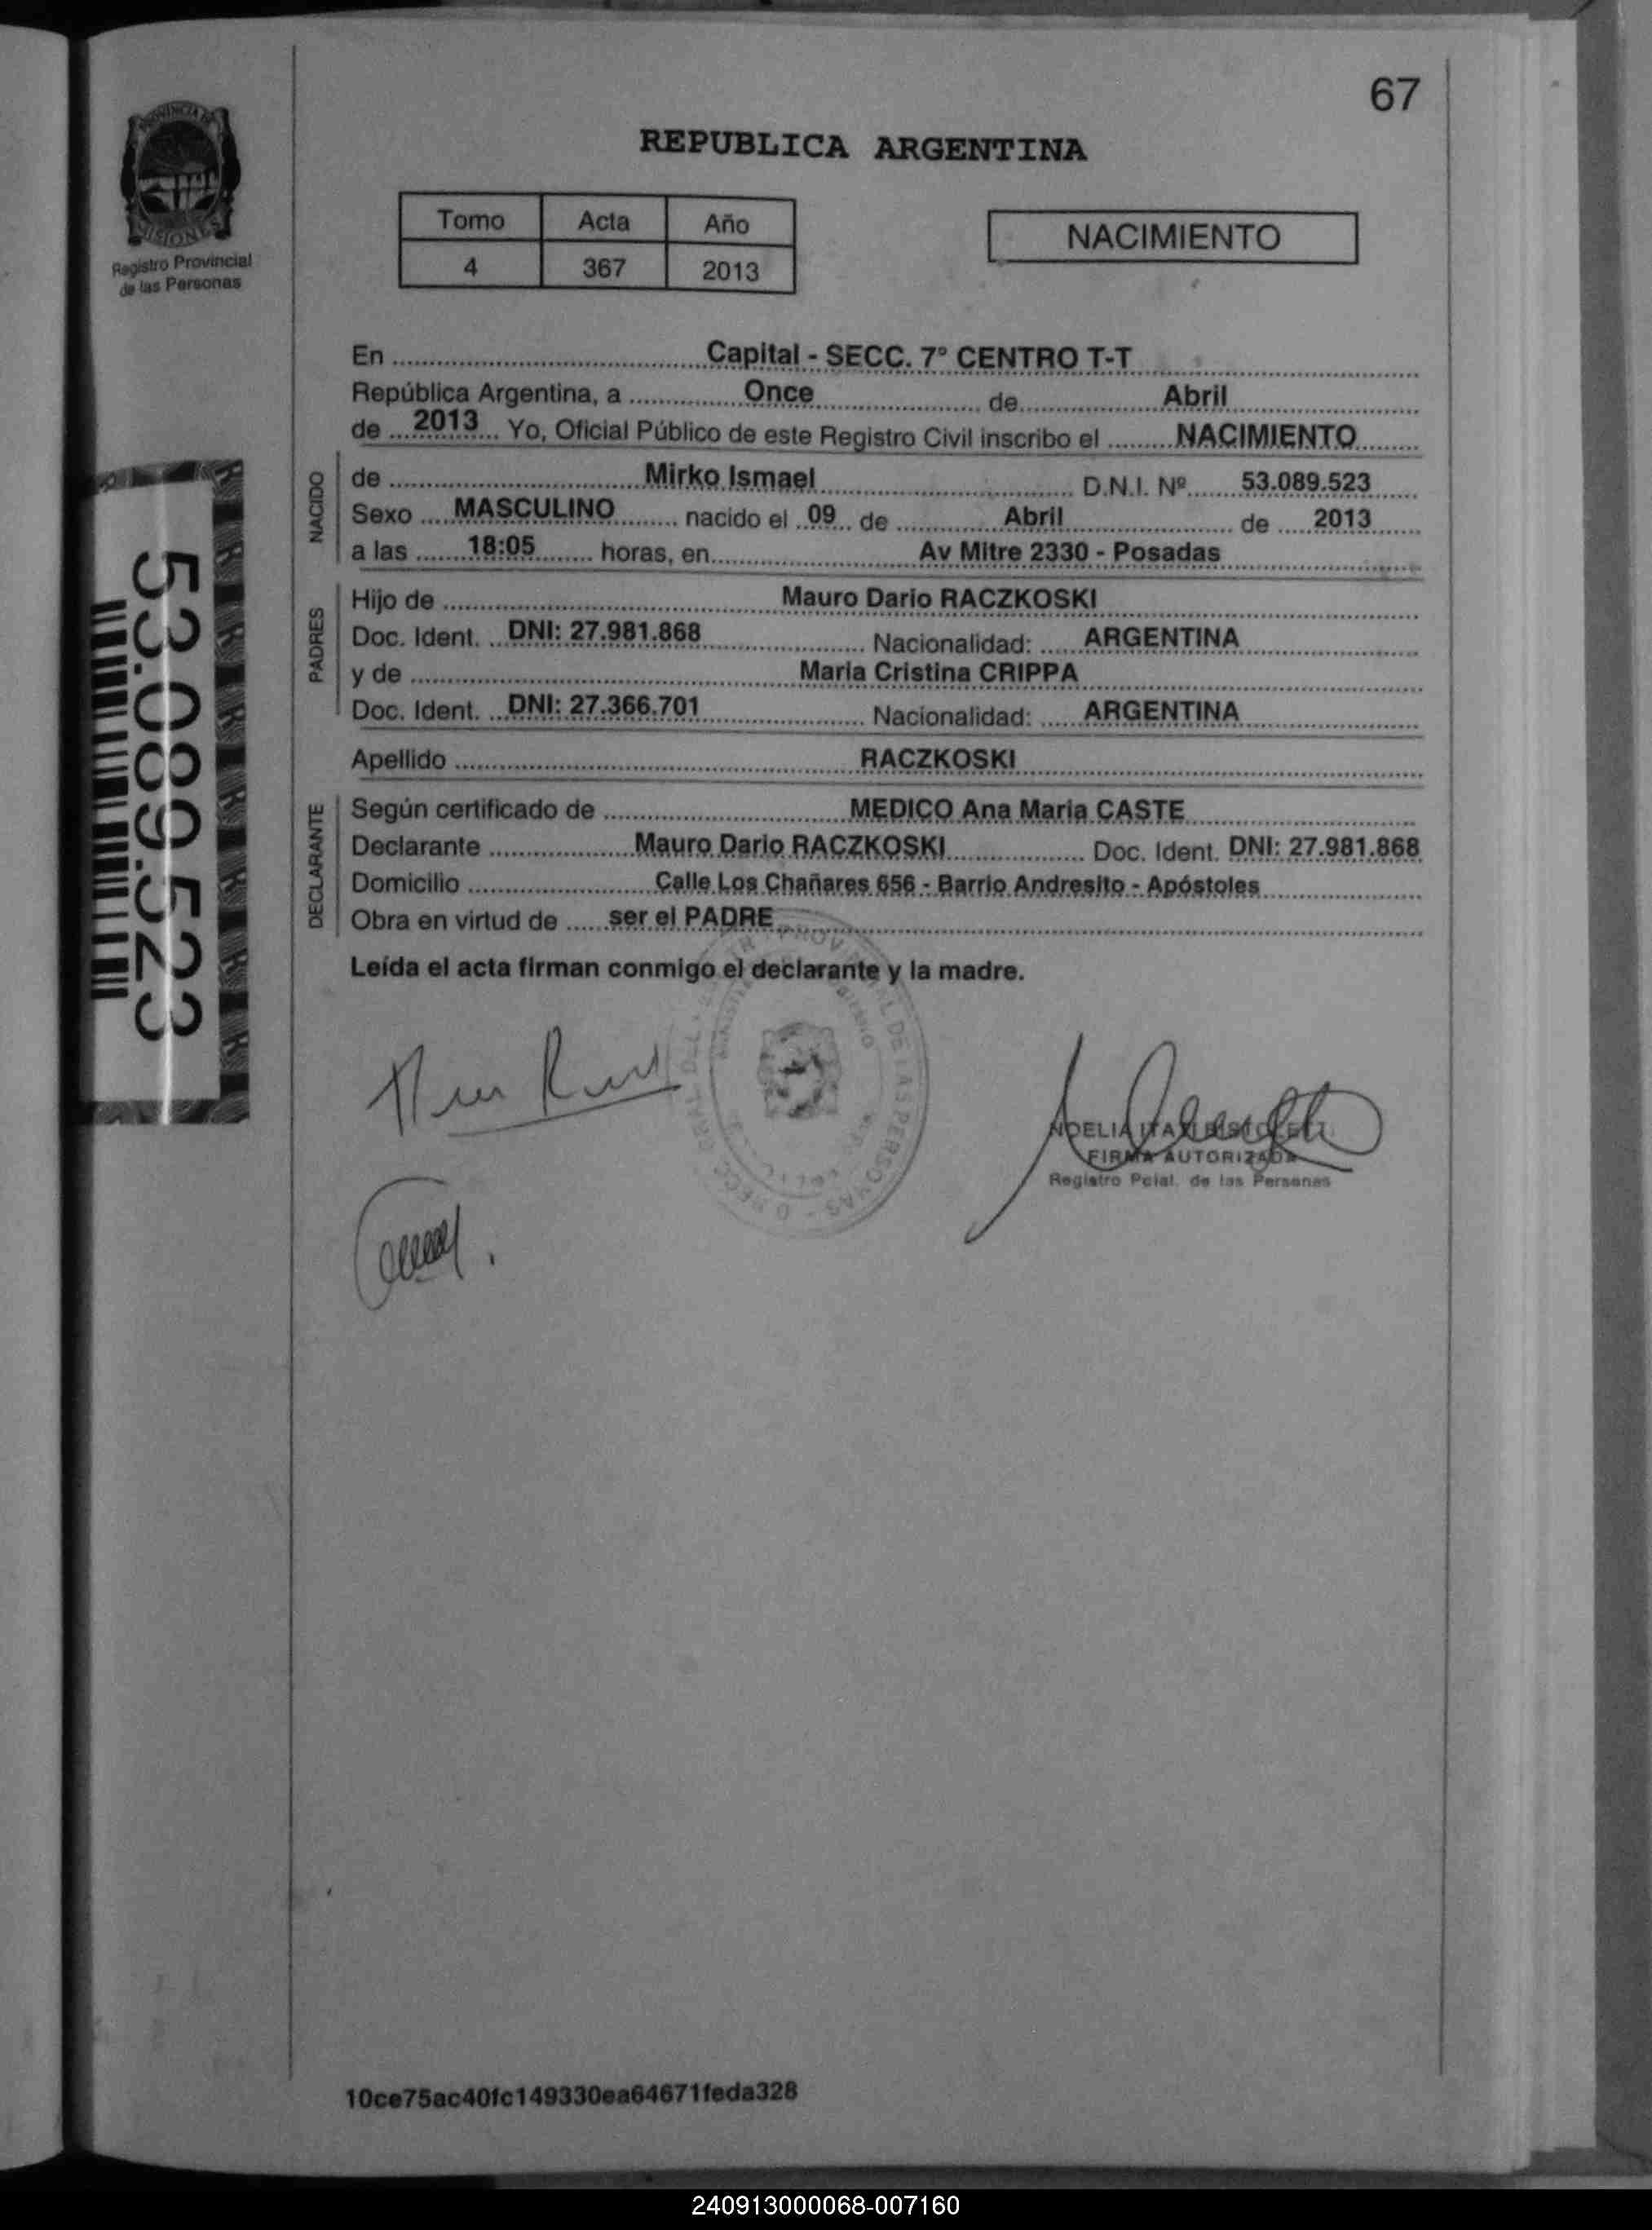 67
PROVINCIA DE
MISIONES
Registro Provincial
de las Personas
REPUBLICA ARGENTINA
Tomo Acta Año
4 367 2013
NACIMIENTO
En Capital - SECC. 7° CENTRO T-T
República Argentina, a Once de Abril
de 2013 Yo, Oficial Público de este Registro Civil inscribo el NACIMIENTO
NACIDO
de Mirko Ismael D.N.I. Nº 53.089.523
Sexo MASCULINO nacido el 09 de Abril de 2013
a las 18:05 horas, en Av Mitre 2330 - Posadas
PADRES
Hijo de Mauro Dario RACZKOSKI
Doc. Ident. DNI: 27.981.868 Nacionalidad: ARGENTINA
y de Maria Cristina CRIPPA
Doc. Ident. DNI: 27.366.701 Nacionalidad: ARGENTINA
Apellido RACZKOSKI
DECLARANTE
Según certificado de MEDICO Ana Maria CASTE
Declarante Mauro Dario RACZKOSKI Doc. Ident. DNI: 27.981.868
Domicilio Calle Los Chañares 656 - Barrio Andresito - Apóstoles
Obra en virtud de ser el PADRE
Leída el acta firman conmigo el declarante y la madre.
53.089.523
NOELIA
FIRMA AUTORIZADA
Registro Pcial. de las Personas
DE LAS PERSONAS
10ce75ac40fc149330ea64671feda328
240913000068-007160